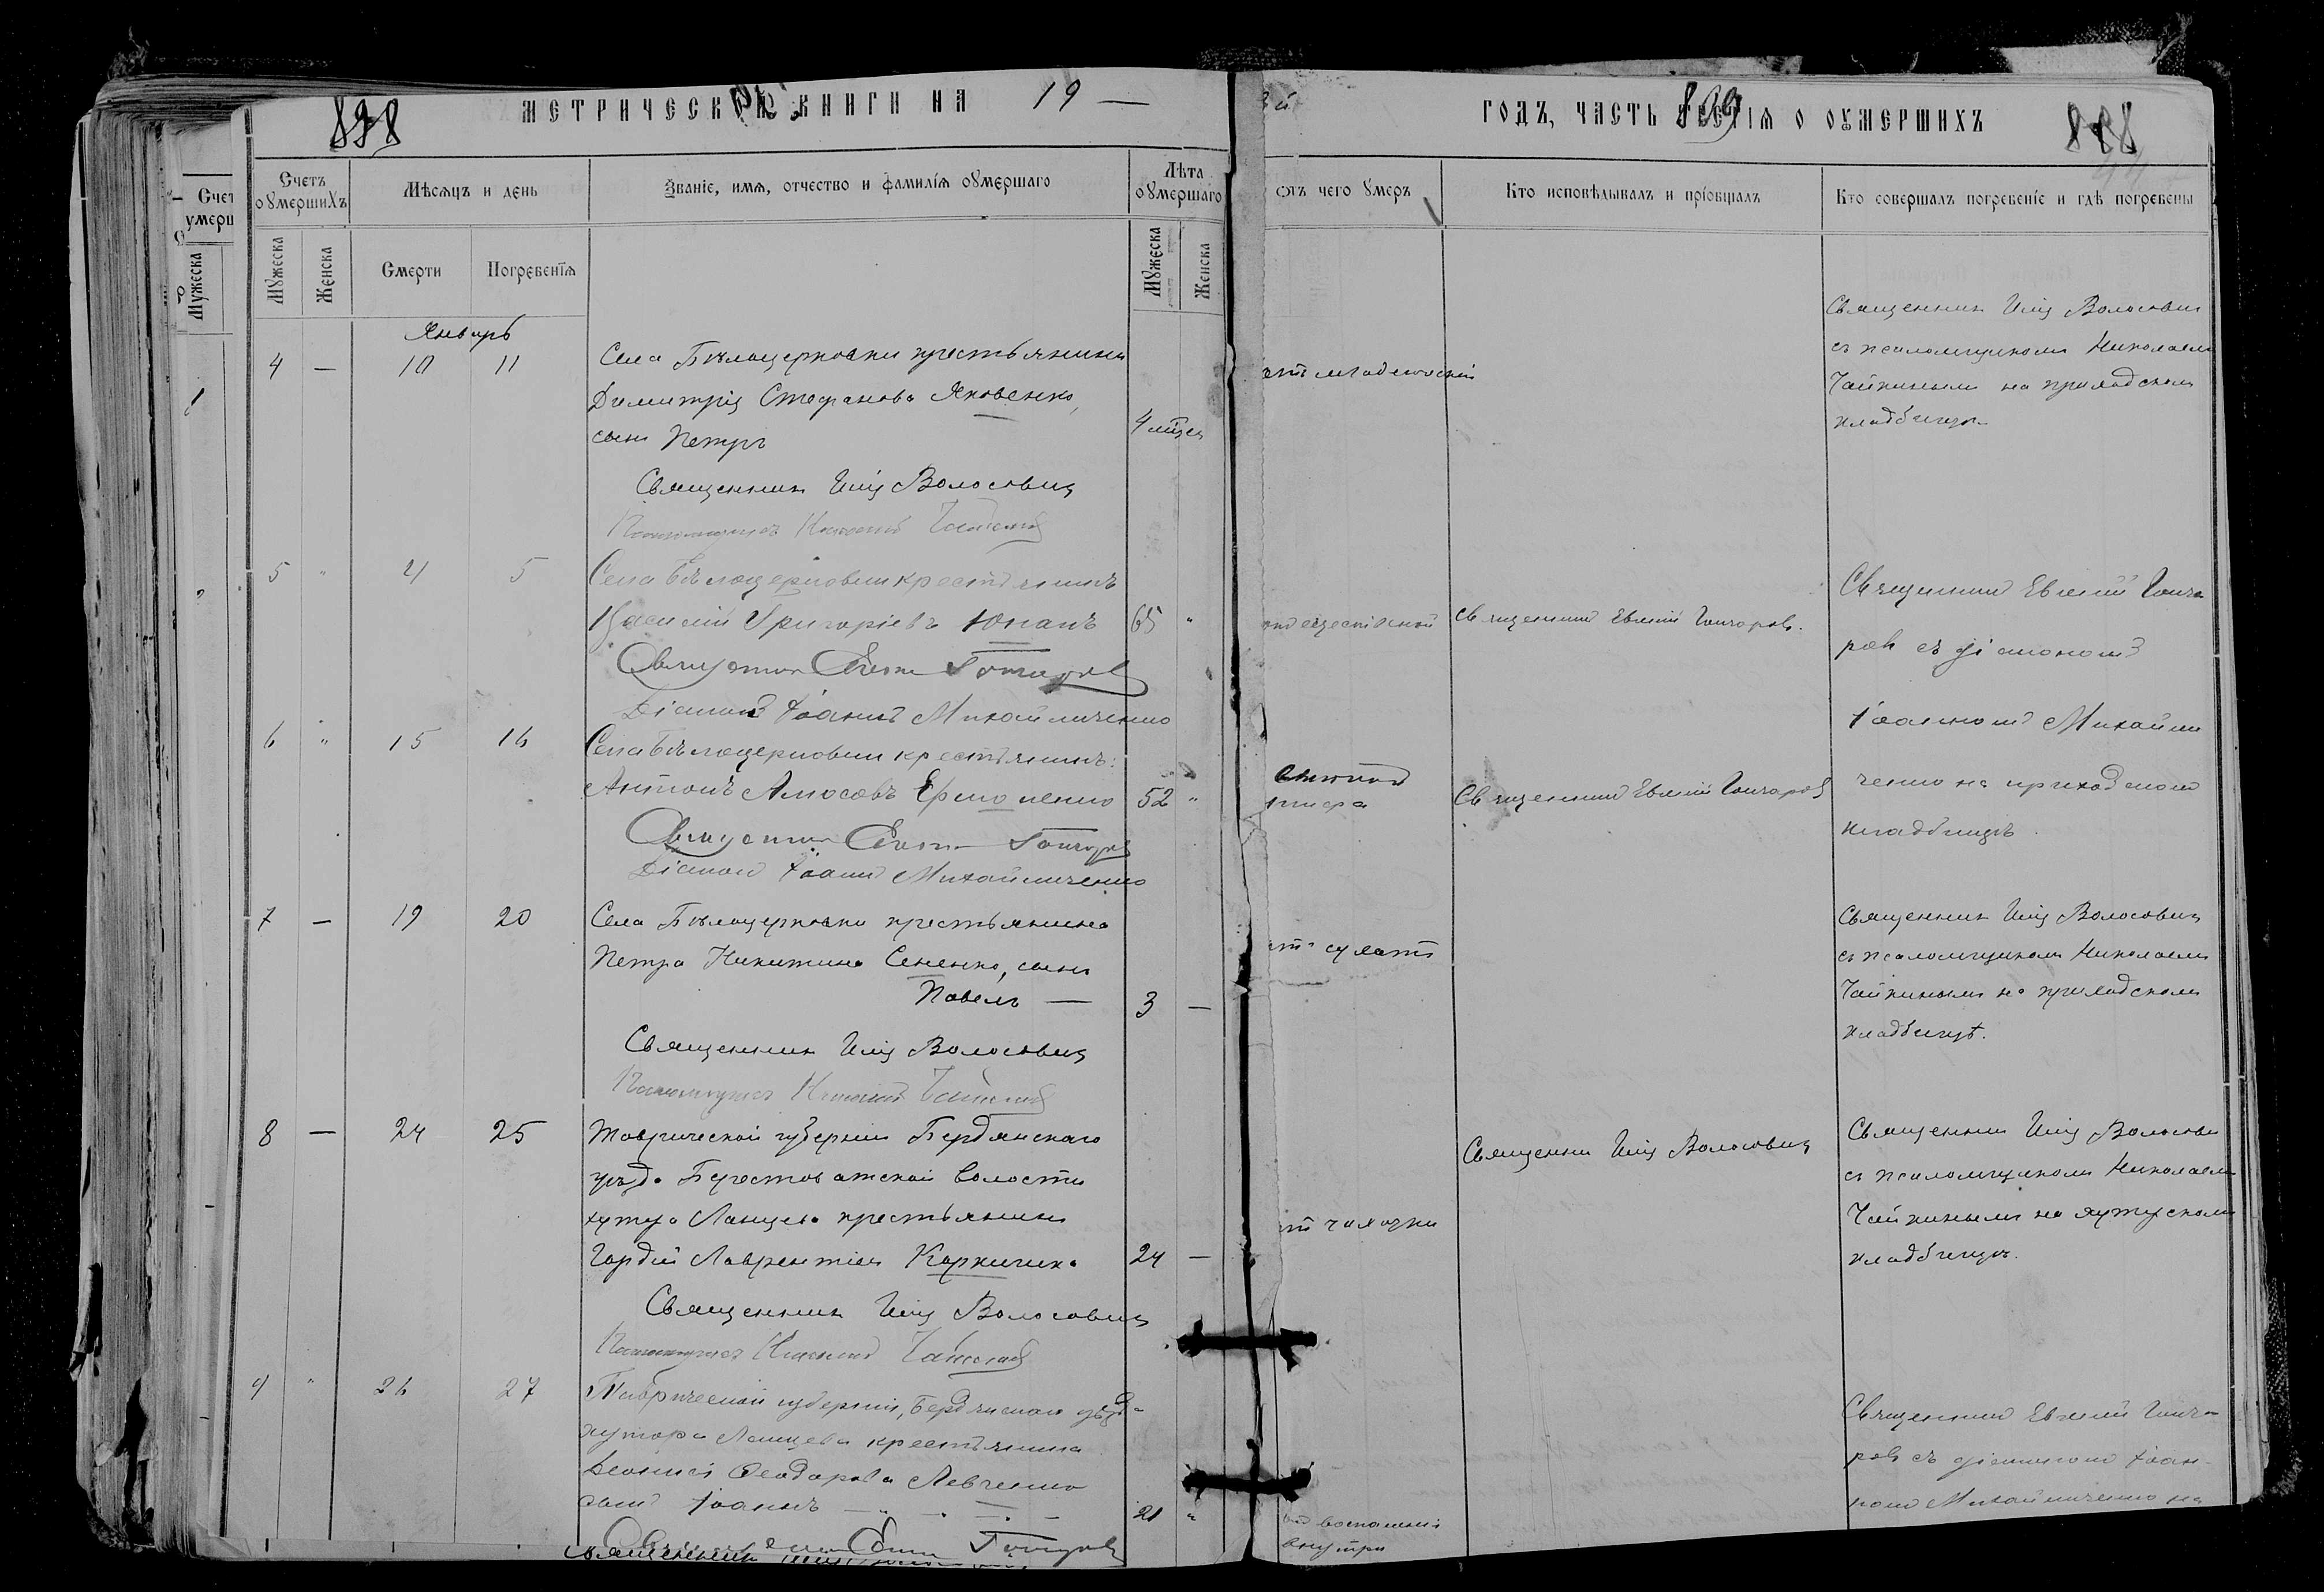 898
МЕТРИЧЕСКОЙ КНИГИ НА 19 —
Счетъ оумершихъ
Мѣсяцъ и день
Званіе, имя, отчество и фамилія оумершаго
Лѣта оумершаго
Мужеска
Женска
Смерти
Погребенія
Мужеска
Женска
Январь
4 — 10 11 Села Бѣлоцерковки крестьянина
Димитрія Стефанова Яковенко,
сынъ Петръ 4 мѣсец
Священникъ Илія Волосовичъ
Псаломщикъ Николай
5 " 4 5 Села Бѣлоцерковки крестьянинъ
Василій Григоріевъ Юнакъ 65 "
Священникъ Евгеній Гончаровъ
Діаконъ Іоаннъ Михайличенко
6 " 15 16 Села Бѣлоцерковки крестьянинъ
Антонъ Амосовъ Ермоленко 52 "
Священникъ Евгеній Гончаровъ
Діаконъ Іоаннъ Михайличенко
7 — 19 20 Села Бѣлоцерковки крестьянина
Петра Никитина Сененко, сынъ
Павелъ — 3 —
Священникъ Илія Волосовичъ
Псаломщикъ Николай
8 — 24 25 Таврической губерніи Бердянскаго
уѣзда Берестоватской волости
хутора Ланцева крестьянинъ
Гордій Лаврентіевъ 24 —
Священникъ Илія Волосовичъ
Псаломщикъ Николай
9 " 26 27 Таврической губерніи, Бердянскаго уѣзда
хутора Ланцева крестьянина
Діонисія Ѳеодорова Левченко
сынъ Іоаннъ 21 "
Священникъ Евгеній Гончаровъ
Священникъ
ГОДЪ, ЧАСТЬ ТРЕТІЯ О ОУМЕРШИХЪ
899
отъ чего умеръ
Кто исповѣдывалъ и пріобщалъ
Кто совершалъ погребеніе и гдѣ погребены
Священникъ Илія Волосовичъ
съ псаломщикомъ Николаемъ
Чайкинымъ на приходскомъ
кладбищѣ
Священникъ Евгеній Гончаровъ.
Священникъ Евгеній Гонча
ровъ съ діакономъ
Іоанномъ Михайли
ченко на приходскомъ
кладбищѣ.
тифа
Священникъ Евгеній Гончаровъ
Священникъ Илія Волосовичъ
съ псаломщикомъ Николаемъ
Чайкинымъ на приходскомъ
кладбищѣ.
отъ чахотки
Священникъ Илія Волосовичъ
Священникъ Илія Волосови
съ псаломщикомъ Николаемъ
Чайкинымъ на хуторскомъ
кладбищѣ.
воспаленія
внутри
Священникъ Евгеній Гонча
ровъ съ діакономъ Іоан
номъ Михайличенко на